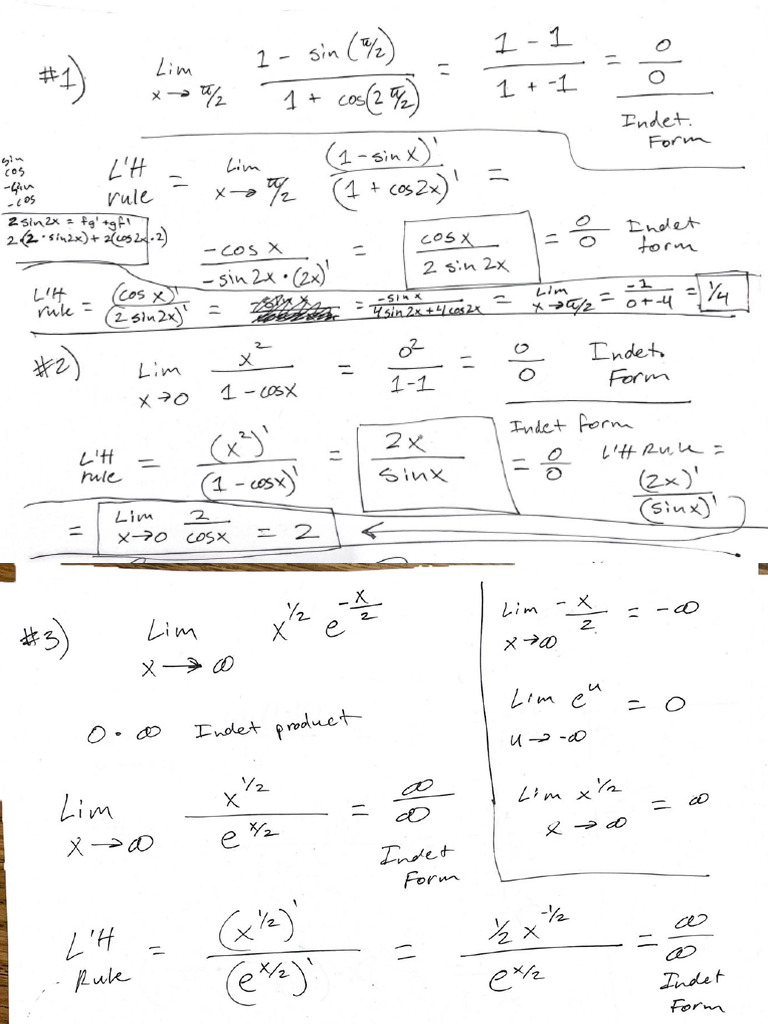 #1) Lim x→π/2 (1 - sin(π/2))/(1 + cos(2π/2)) = (1 - 1)/(1 + -1) = 0/0
Indet. Form
sin
cos
-sin
-cos
L'H rule = Lim x→π/2 (1 - sin x)'/(1 + cos2x)' =
2 sin2x = fg' + gf'
2(2·sin2x) + 2(cos2x·2)
-cos x/(-sin 2x·(2x)') = cos x/(2 sin 2x) = 0/0 Indet form
L'H rule = (cos x)'/(2 sin2x)' = = -sin x/(4sin2x + 4cos2x) = Lim x→π/2 = -1/(0 + -4) = 1/4
#2) Lim x→0 x²/(1 - cosx) = 0²/(1-1) = 0/0 Indet. Form
L'H rule = (x²)'/(1 - cosx)' = 2x/sinx = 0/0 Indet form L'H Rule = (2x)'/(sinx)'
= Lim x→0 2/cosx = 2 ←
#3) Lim x→∞ x^{1/2} e^{-x/2}
Lim x→∞ -x/2 = -∞
Lim u→-∞ e^u = 0
Lim x→∞ x^{1/2} = ∞
0 · ∞ Indet product
Lim x→∞ x^{1/2}/e^{x/2} = ∞/∞
Indet Form
L'H Rule = (x^{1/2})'/(e^{x/2})' = ½x^{-1/2}/e^{x/2} = ∞/∞
Indet Form